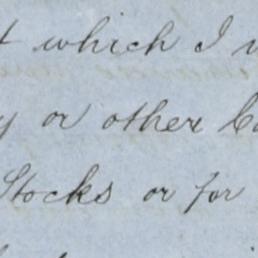 which I
or other
Stocks or for